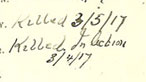 Killed 3/5/17
Killed In Action
3/4/17